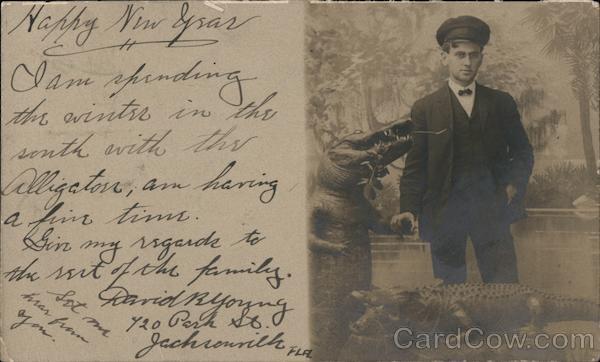 Happy New Year
I am spending
the winter in the
south with the
Alligators, am having
a fine time.
Give my regards to
the rest of the family.
David B Young
720 Park St.
Jacksonville FLA
Let me
hear from
you.
CardCow.com